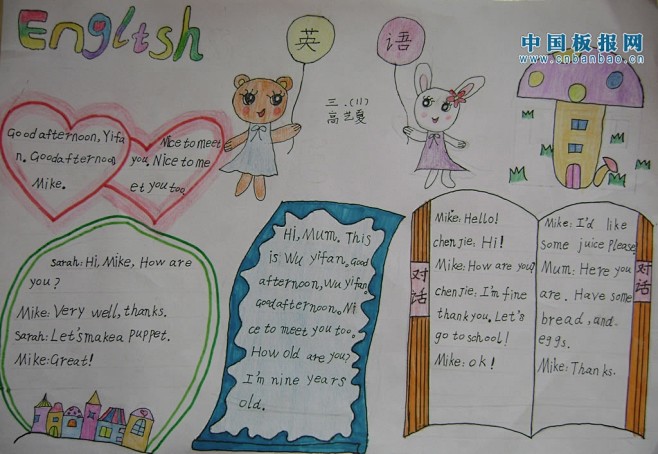 English
英
语
中国板报网
www.cnbanbao.cn
三.(11)
高艺夏
Good afternoon, Yifa
n. Goodafternoon
Mike.
Nice to meet
you. Nice to me
et you too.
Sarah: Hi, Mike, How are
you?
Mike: Very well, thanks.
Sarah: Let's make a puppet.
Mike: Great!
Hi, Mum. This
is Wu Yifan. Good
afternoon, Wu Yifan.
Good afternoon. Ni
ce to meet you too.
How old are you?
I'm nine years
old.
对话
Mike: Hello!
chen Jie: Hi!
Mike: How are you?
chen Jie: I'm fine
thank you. Let's
go to school!
Mike: ok!
Mike: I'd like
some juice Please
Mum: Here you
are. Have some
bread, and
eggs.
Mike: Thanks.
对话